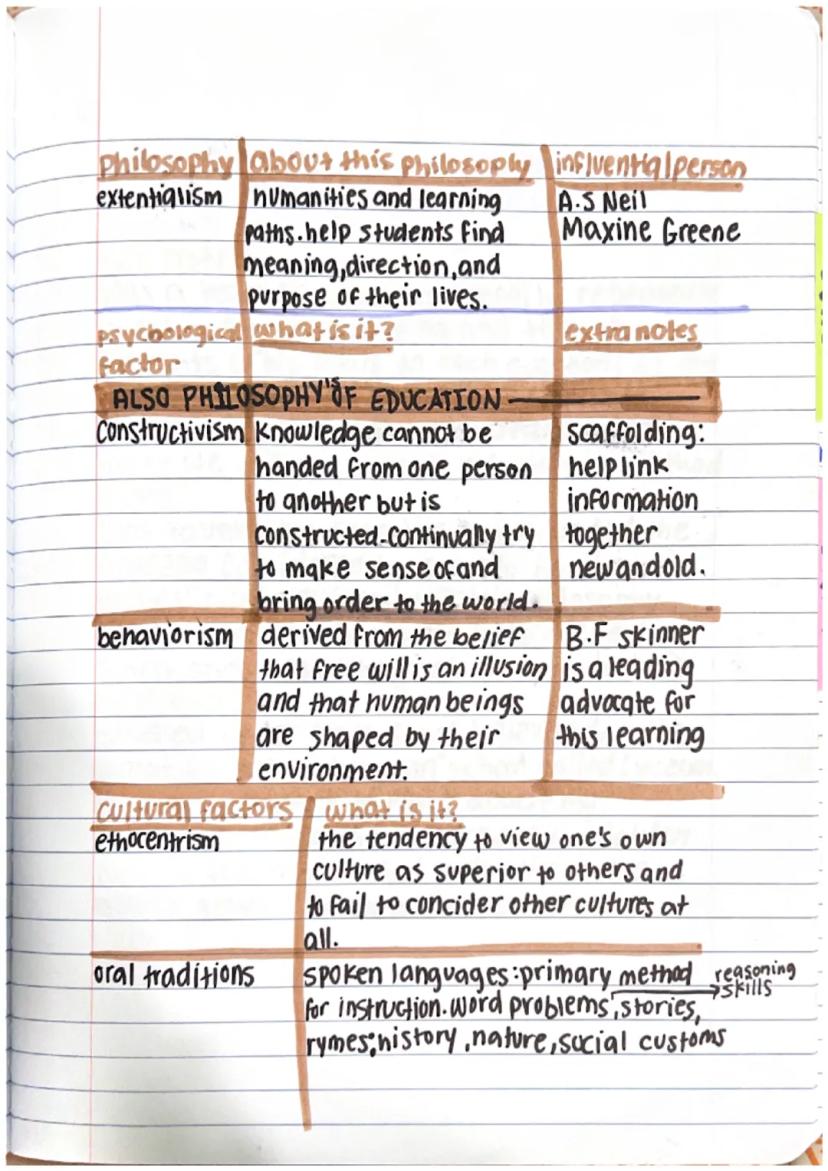 philosophy about this philosophy influential person
extentialism humanities and learning A.S Neil
paths. help students find Maxine Greene
meaning, direction, and
purpose of their lives.
psychological what is it? extra notes
factor
ALSO PHILOSOPHY'S OF EDUCATION
Constructivism knowledge cannot be scaffolding:
handed from one person help link
to another but is information
constructed-continually try together
to make sense of and new and old.
bring order to the world.
behaviorism derived from the belief B.F skinner
that free will is an illusion is a leading
and that human beings advocate for
are shaped by their this learning
environment.
Cultural factors what is it?
ethocentrism the tendency to view one's own
culture as superior to others and
to fail to concider other cultures at
all.
oral traditions spoken languages: primary method reasoning
skills
for instruction. word problems, stories,
rymes; history, nature, social customs